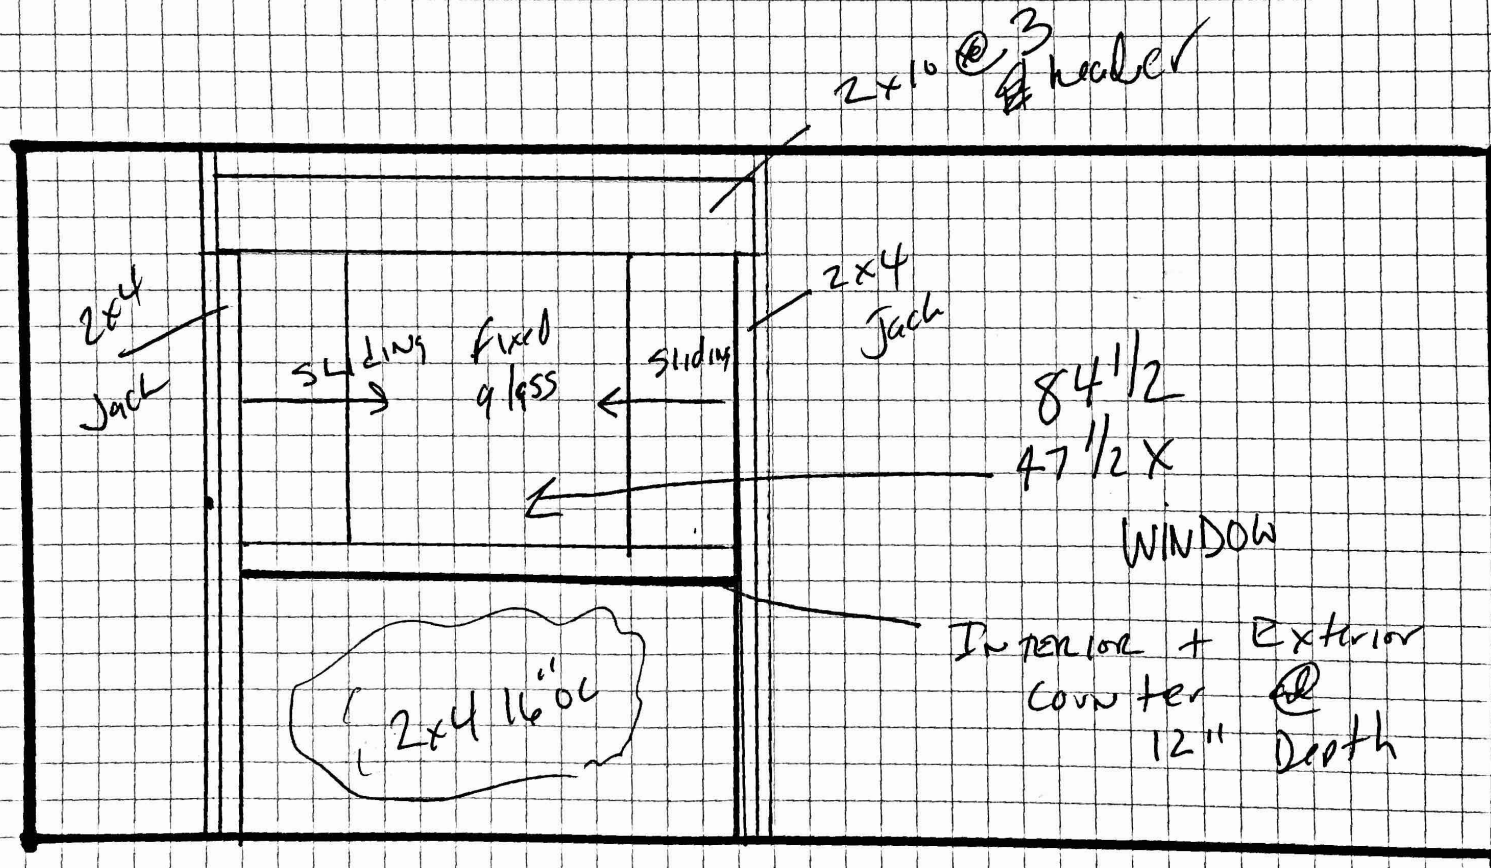 2x10 @ 3
header
2x4
Jack
2x4
Jack
SLIDING
fixed
glass
Sliding
84 1/2
47 1/2 X
WINDOW
INTERIOR + Exterior
Counter @
12" Depth
2x4 16" OC